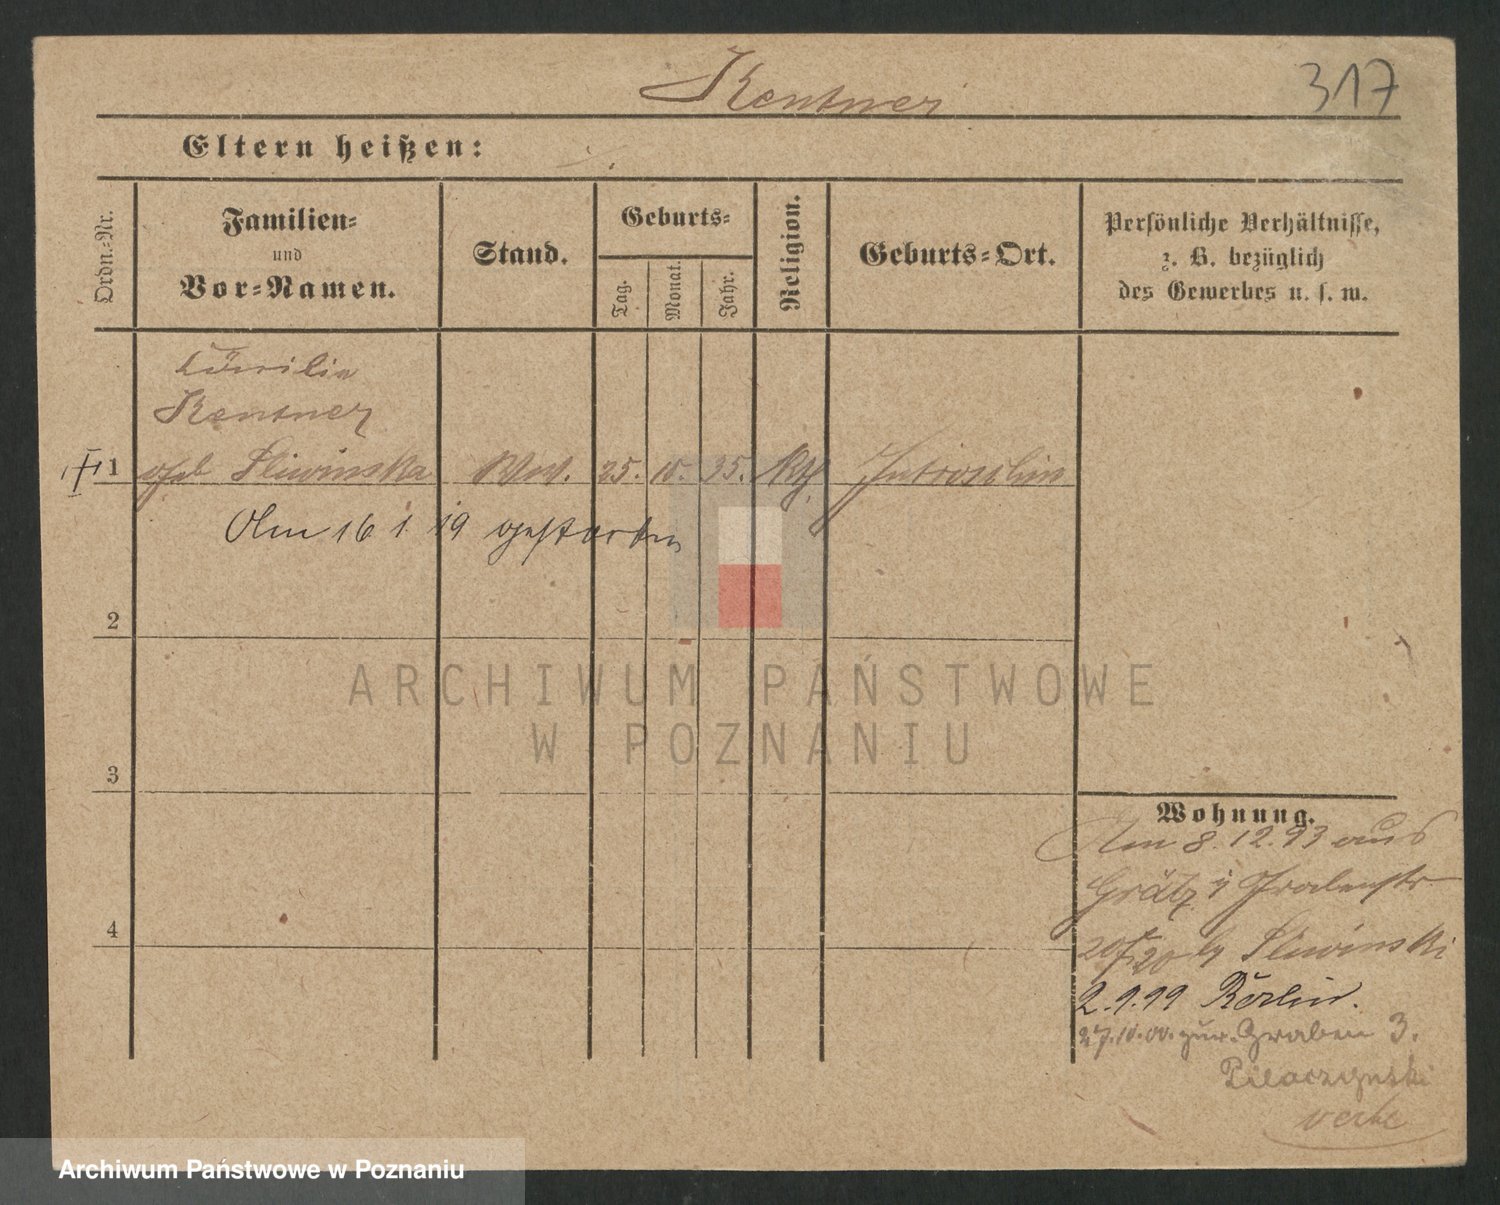 Kentner
317
Eltern heißen:
Ordn.-Nr.
Familien-
und
Vor-Namen.
Stand.
Geburts-
Tag.
Monat.
Jahr.
Religion.
Geburts-Ort.
Persönliche Verhältnisse,
z. B. bezüglich
des Gewerbes u. s. w.
Kentner
1 geb Sliwinska Ww. 25. 10. 35. Kth.
Am 16 1. 19 gestorben
2
3
4
Wohnung.
Am 8. 12. 93 aus
Grätz
Sliwinski
2.9.99 Berlin.
27.10.00. zur. Graben 3.
ARCHIWUM PAŃSTWOWE
W POZNANIU
Archiwum Państwowe w Poznaniu